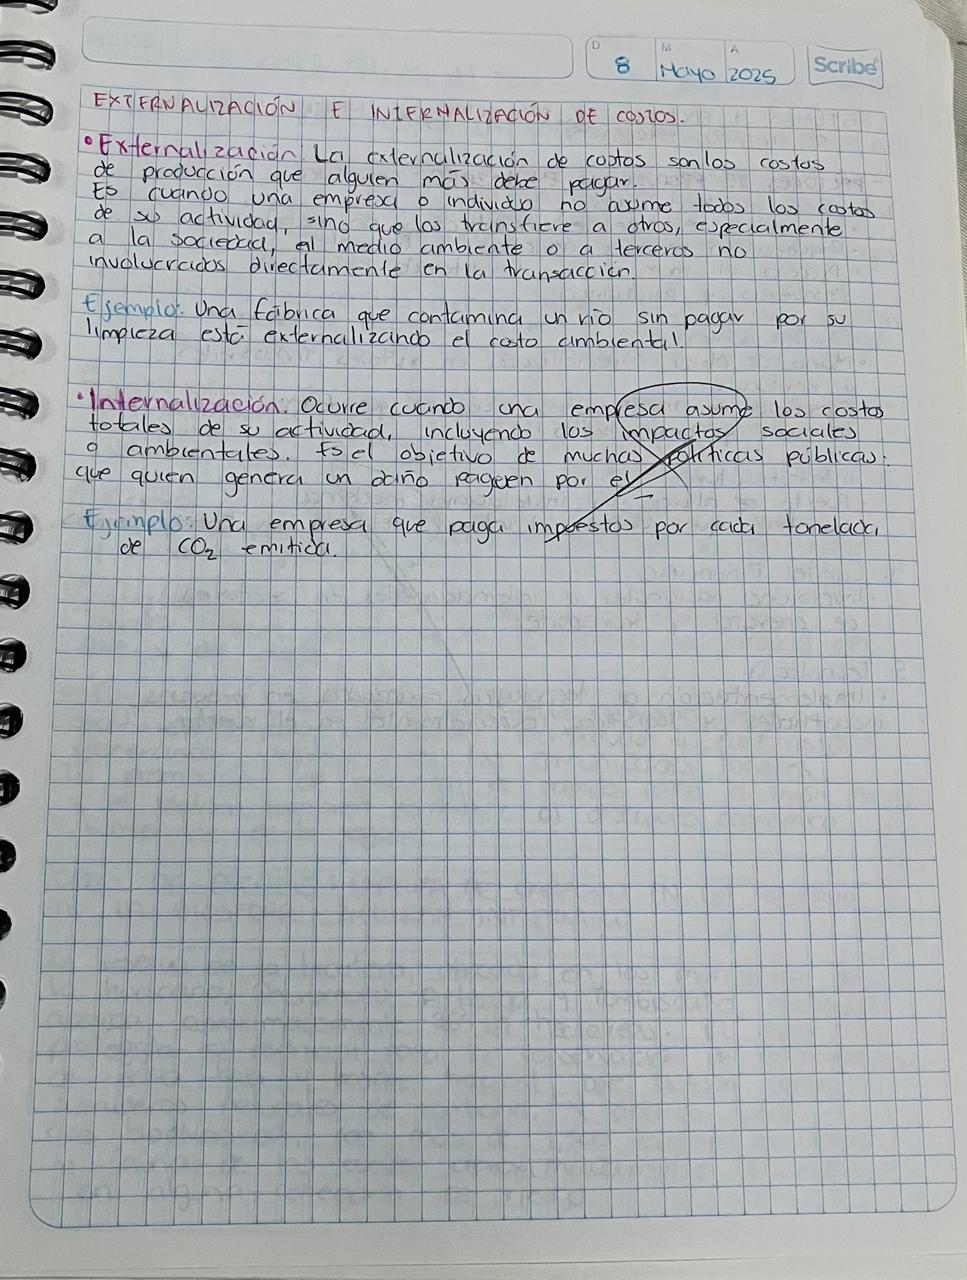 D M A
8 Mayo 2025 Scribe
EXTERNALIZACIÓN E INTERNALIZACIÓN DE COSTOS.
• Externalización La externalización de coptos son los costos
de producción que alguien más debe pagar.
Es cuando una empresa o individuo no asume todos los costos
de su actividad, sino que los transfiere a otros, especialmente
a la sociedad, al medio ambiente o a terceros no
involucrados directamente en la transacción.
Ejemplo: Una fábrica que contamina un río sin pagar por su
limpieza está externalizando el costo ambiental.
• Internalización: Ocurre cuando una empresa asume los costos
totales de su actividad, incluyendo los impactos sociales
o ambientales. Es el objetivo de muchas políticas públicas:
que quien genera un daño pageen por el
Ejemplo: Una empresa que paga impuestos por cada tonelada
de CO2 emitida.